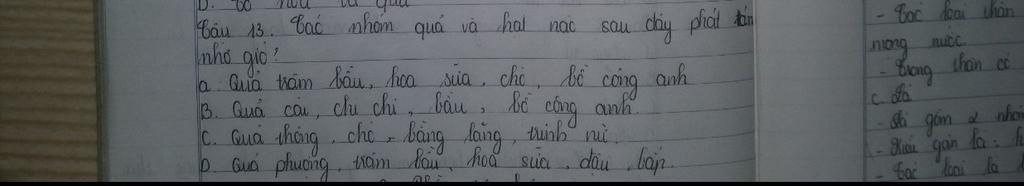 D. Bỏ
quả
Câu 13. Các nhóm quả và hạt nào sau đây phát tán
nhờ gió?
a. Quả trâm bầu, hoa sữa, chò, bồ công anh
B. Quả cải, chi chi, bầu, bồ công anh.
C. Quả thông, chò, bằng lăng, trinh nữ.
D. Quả phượng, trâm bầu, hoa sữa, đậu bắp.
- Các loại thân
mọng nước
- Trong thân có
C.
- gân
- gân lá:
- Các loại lá